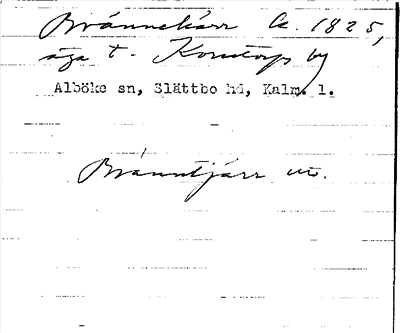 Brännekärr A. 1825,
äga t. Konstorps by
Alböke sn, Slättbo hd, Kalm. l.
Bränntjärr uu.